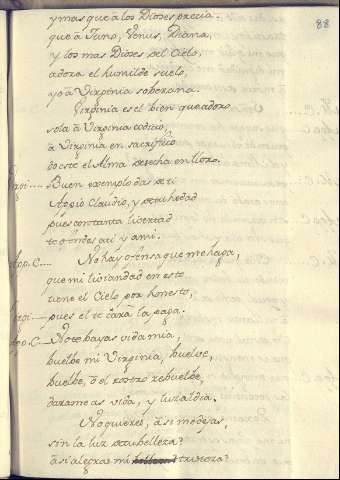 88
y mas que a los Dioses precia.
que a Juno, Venus, Diana,
y los mas Dioses del Cielo,
adora el humilde suelo,
yo a Virginia soberana.
Virginia es el bien que adoro
sola a Virginia codicio,
a Virginia en sacrificio
doeste el Alma desecha en lloro.
Virgi.... Buen exemplo das de ti
Appio Claudio, y de tu hedad
pues con tanta libertad
te ofendes a ti y a mi.
App. C.... No hay ofensa que me haga,
que mi liviandad en esto
tiene el Cielo por honesto,
Virgi.... pues el te dara la paga.
App. C.... No te bayas vida mia
buelbe mi Virginia, buelve,
buelbe, o el rostro rebuelbe,
darame as vida, y luz al dia.
No quieres, asi me dejas,
sin la luz de tu belleza?
asi alegras mi tristeza?